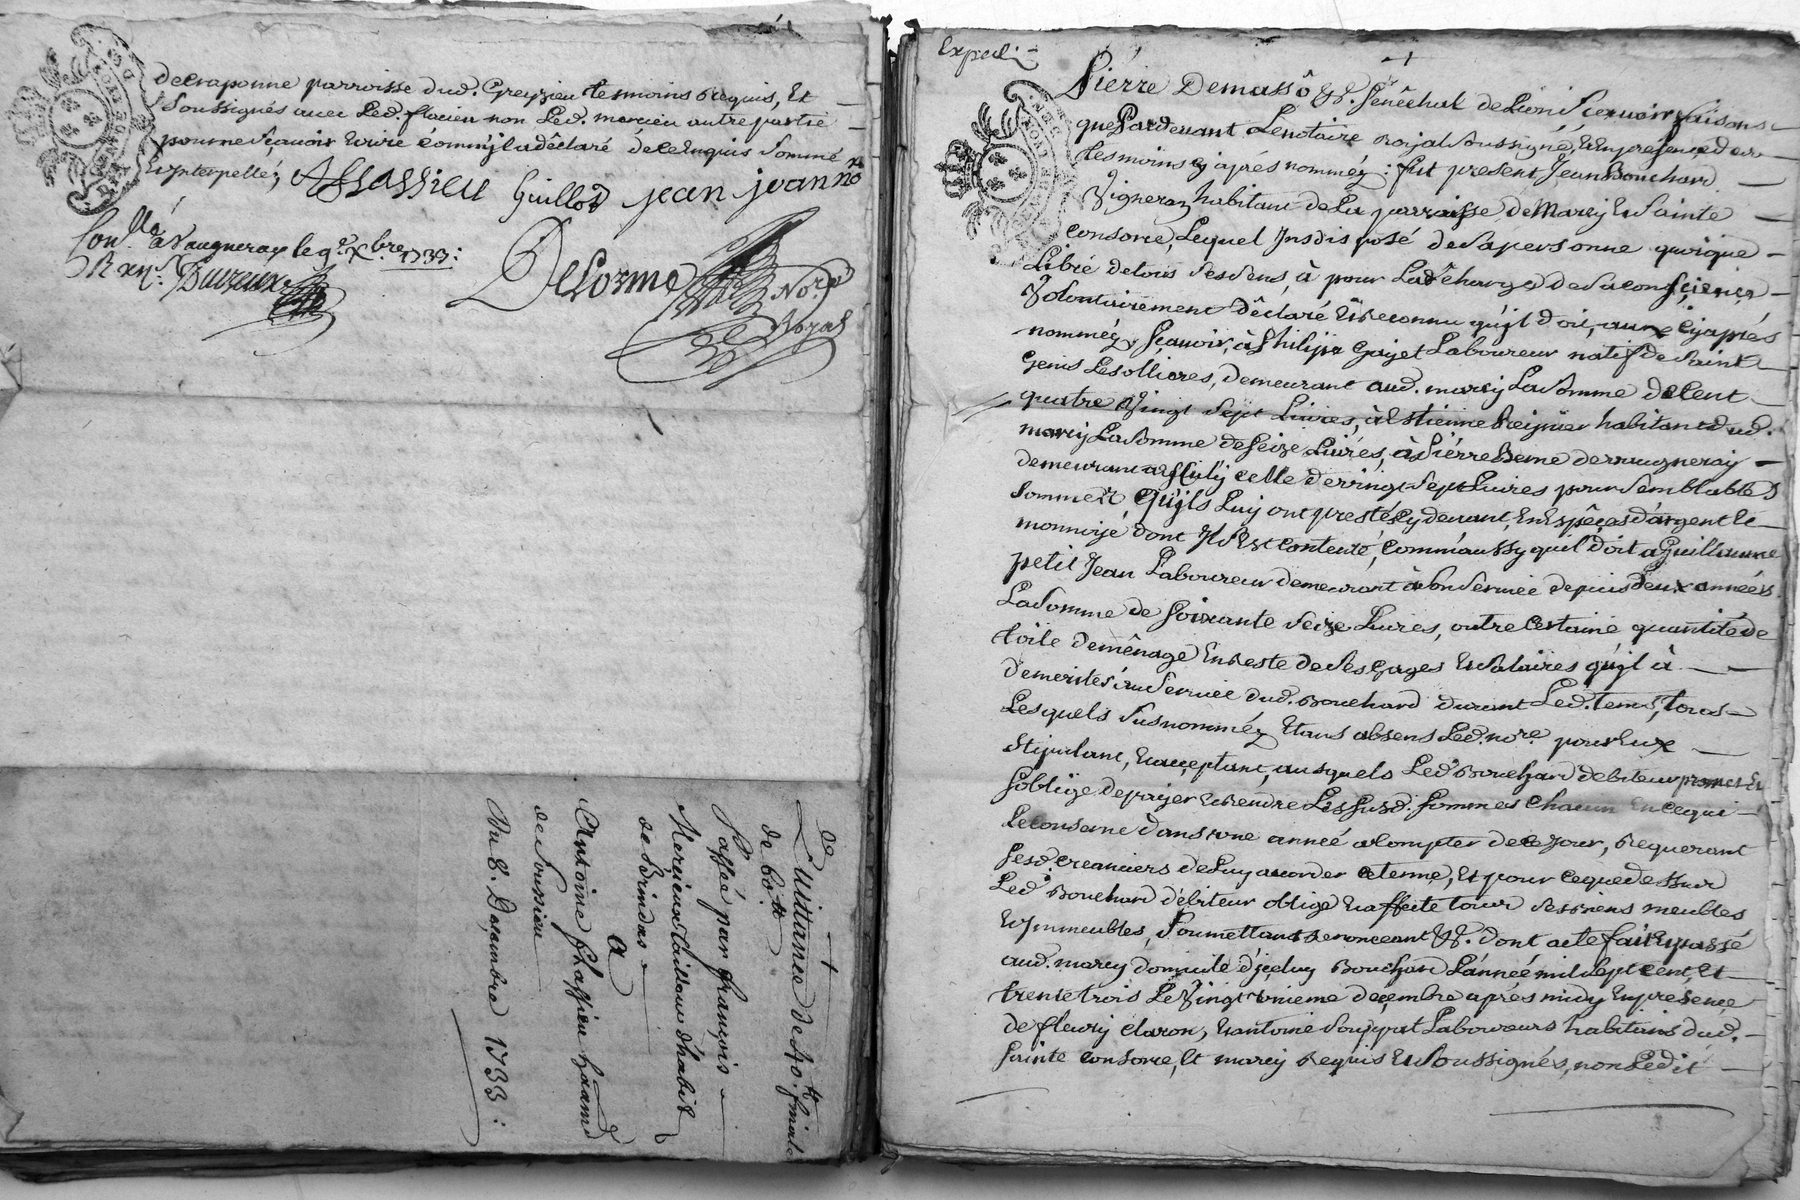 de Craponne parroisse dud. Greyzieu tesmoins Requis, Et
Soussignés avec Led. flacieu non Led. mercieu autre partie
pour ne Sçavoir Ecrire comm'jl a déclaré de ce Enquis Sommé
Et jnterpellé;
AFlassieu Guillod jean jvanno
Con.llé à Vaugneray le 9e Xbre 1733:
Delorme
No.re Royal
Quittance de 40.tt finale
de 60.tt
Passée par François
Mercieux Tailleur d'habit
de Brindas
A
Antoine flassieu Grand
de Soussieu
Du 8. Décembre 1733:
Expedi.
Pierre Demassô &c. Senêchal de Lion Scavoir faisons
que Pardevant Le notaire Royal Soussigné, & En presence des
tesmoins cy après nomméz: fut present Jean Bouchard
Vigneron habitant de La parroisse de Marcy & Sainte
Consorce, Lequel Jndisposé de Sa personne quoique
Libre de tous Ses Sens, à pour La decharge de Sa conscience
Volontairement déclaré & Reconnu qu'jl doit, aux cy après
nomméz, Scavoir, à Philipe Gayet Laboureur natif de Saint
Genis Les ollieres, demeurant aud. marcy La Somme de Cent
quatre Vingt Sept Livres, à Estienne Reynier habitant dud.
marcy La Somme de Seize Livres, à Pierre Beme de vaugneray
demeurant celle de vingt Sept Livres pour Semblables
Sommes, qu'jls Luy ont prestés cy devant, En Espêces d'argent Et
monnoye, dont Jl Est contenté, Comm'aussy quil doit a Guillaume
petit Jean Laboureur demeurant à Son Service depuis deux années
La Somme de Soixante Seize Livres, outre Certaine quantité de
toile de ménage En Reste de Ses Gages & Salaires qu'jl à
demerités au Service dud. Bouchard durant Led. tems, tous
Lesquels Susnomméz Etans absens Led. no.re pour Eux
Stipulant, & acceptant, ausquels Led. Bouchard debiteur promet &
S'oblige de payer & Rendre Les Susd. Sommes chacun En ce qui
Le conserne dans une année a Compter de ce Jour, Requerant
Sesd. creanciers de Luy accorder ce terme, Et pour ce que dessus
Led. Bouchard débiteur oblige & affecte tous Ses Biens meubles
& jmmeubles, Soumettant Renonceant &c. dont acte fait & passé
aud. marcy domicile d'jceluy Bouchard L'année mil Sept cent, Et
trente trois Le Vingt unieme decembre après midy En presence
de fleury claron, & antoine Laboureurs habitans dud.
Sainte Consorce, Et marcy Requis & Soussignés, non Ledit